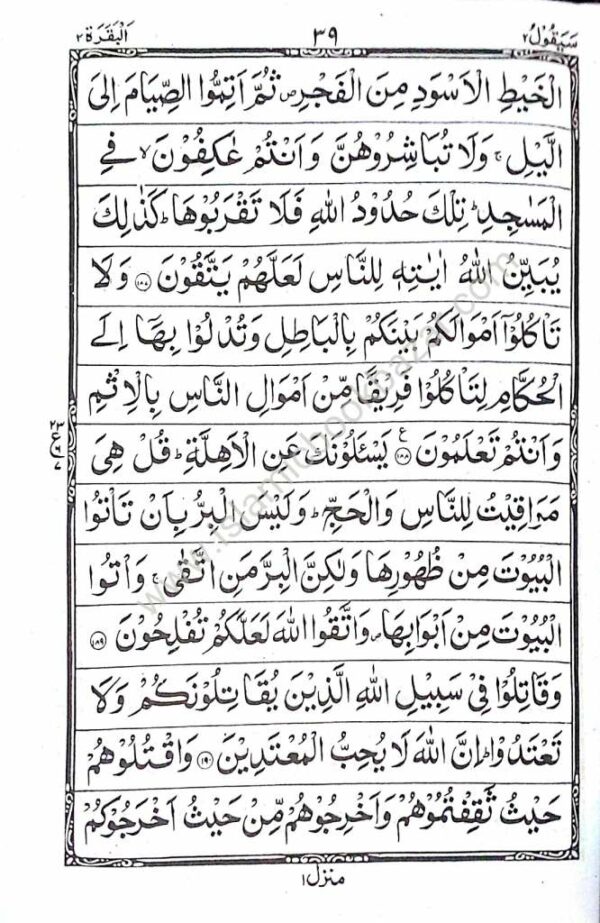 سَيَقُوْلُ ٢ ٣٩ اَلْبَقَرَة ٢
الْخَيْطِ الْاَسْوَدِ مِنَ الْفَجْرِ ص ثُمَّ اَتِمُّوا الصِّيَامَ اِلَى
الَّيْلِ ج وَلَا تُبَاشِرُوْهُنَّ وَاَنْتُمْ عٰكِفُوْنَ لا فِي
الْمَسٰجِدِ ط تِلْكَ حُدُوْدُ اللّٰهِ فَلَا تَقْرَبُوْهَا ط كَذٰلِكَ
يُبَيِّنُ اللّٰهُ اٰيٰتِهٖ لِلنَّاسِ لَعَلَّهُمْ يَتَّقُوْنَ ١٨٧ وَلَا
تَاْكُلُوْٓا اَمْوَالَكُمْ بَيْنَكُمْ بِالْبَاطِلِ وَتُدْلُوْا بِهَآ اِلَى
الْحُكَّامِ لِتَاْكُلُوْا فَرِيْقًا مِّنْ اَمْوَالِ النَّاسِ بِالْاِثْمِ
وَاَنْتُمْ تَعْلَمُوْنَ ١٨٨ ع يَسْـَٔلُوْنَكَ عَنِ الْاَهِلَّةِ ط قُلْ هِيَ
مَوَاقِيْتُ لِلنَّاسِ وَالْحَجِّ ط وَلَيْسَ الْبِرُّ بِاَنْ تَاْتُوا
الْبُيُوْتَ مِنْ ظُهُوْرِهَا وَلٰكِنَّ الْبِرَّ مَنِ اتَّقٰى ج وَاْتُوا
الْبُيُوْتَ مِنْ اَبْوَابِهَا ص وَاتَّقُوا اللّٰهَ لَعَلَّكُمْ تُفْلِحُوْنَ ١٨٩
وَقَاتِلُوْا فِيْ سَبِيْلِ اللّٰهِ الَّذِيْنَ يُقَاتِلُوْنَكُمْ وَلَا
تَعْتَدُوْا ط اِنَّ اللّٰهَ لَا يُحِبُّ الْمُعْتَدِيْنَ ١٩٠ وَاقْتُلُوْهُمْ
حَيْثُ ثَقِفْتُمُوْهُمْ وَاَخْرِجُوْهُمْ مِّنْ حَيْثُ اَخْرَجُوْكُمْ
منزل ١